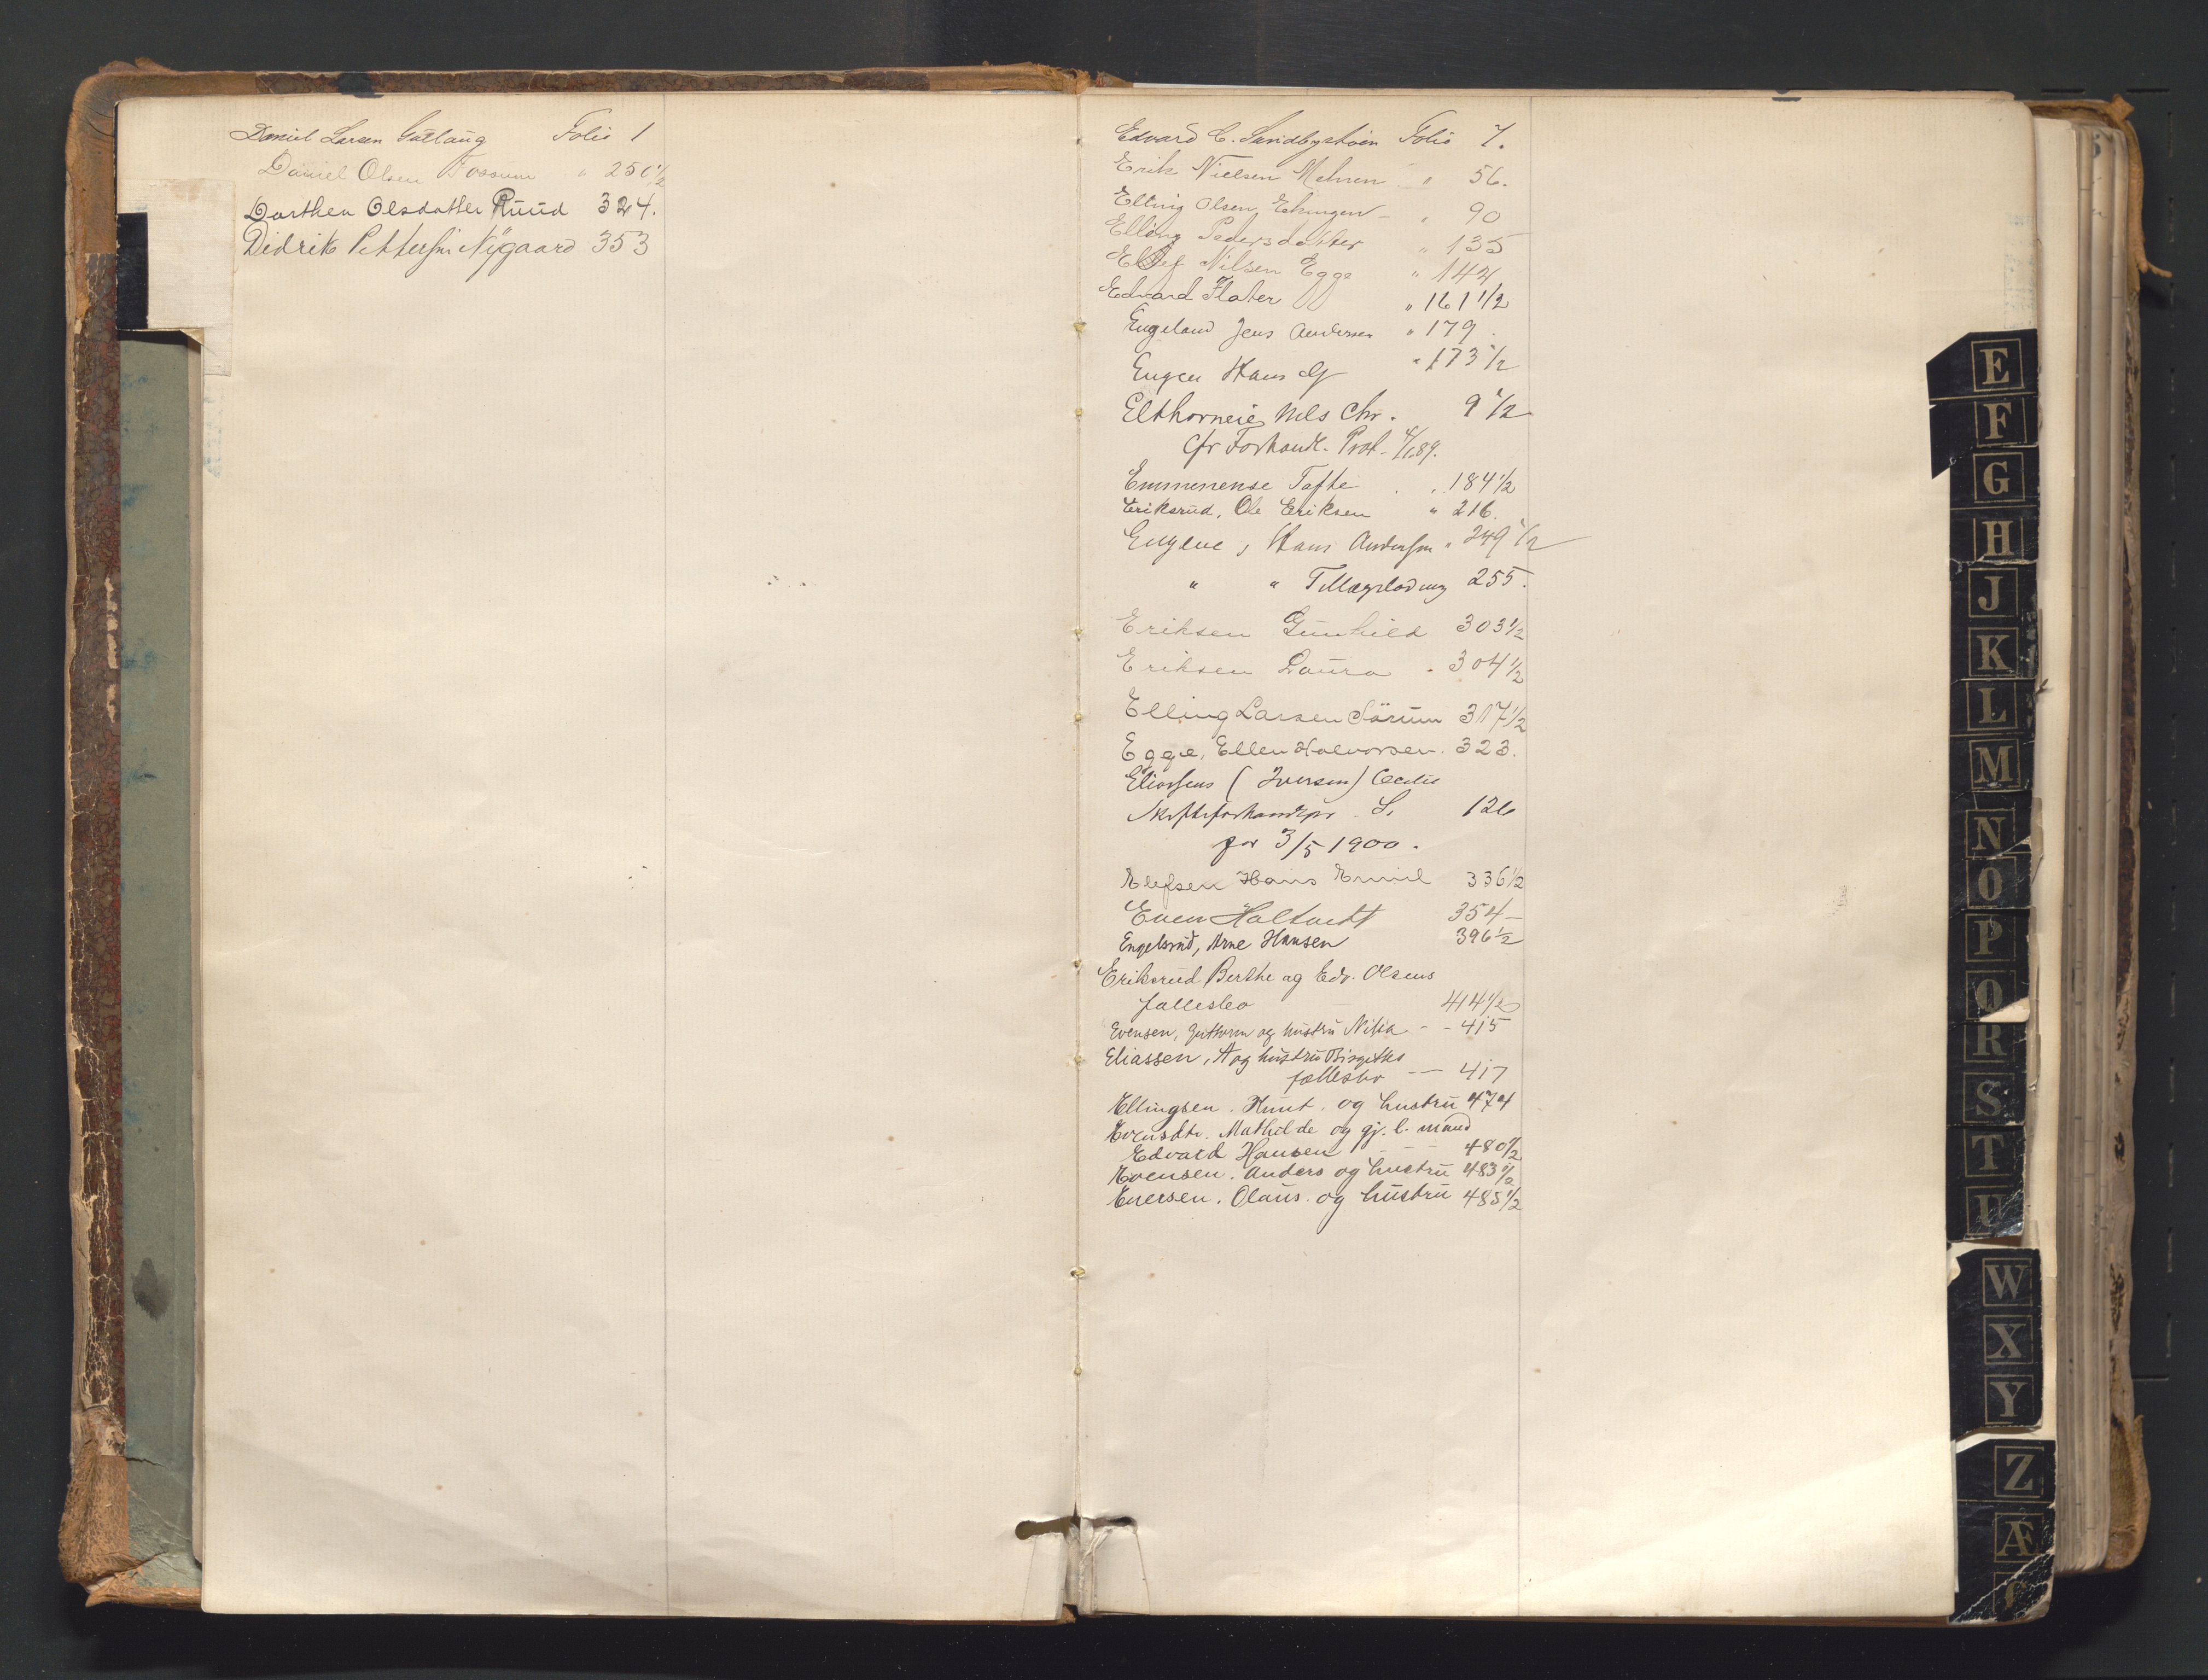 Daniel Larsen Gutlaug Folio 1
Daniel Olsen Fossum " 250 1/2
Dorthea Olsdatter Ruud 324.
Didrik Pettersen Nygaard 353
Edvard C. Sandbystøen Folio 7.
Erik Nielsen Mehren " 56.
Elling Olsen " 90
Elling Pedersdatter " 135
Ellef Nilsen Egge " 144
Edvard Flater " 161 1/2
Engeland Jens Andersen " 179.
Engen Hans " 173 1/2
Elthorneie, Nels Chr. 9 1/2
Cfr Forhandl. Prot.
Emmerense Tofte " 184 1/2
Eriksrud, Ole Eriksen " 216.
Engene, Hans Andersen " 249 1/2
" " Tillægslodning 255.
Eriksen Gunhild 303 1/2
Eriksen Laura . 304 1/2
Elling Larsen Sörum 317 1/2
Egge, Ellen Halvorsen. 323.
Eliassens (Iversen) Cecilie
Skifteforhandlpr. S. 126
for 3/5 1900.
Elefsen Hans Emil 336 1/2
Even Haltvedt 354 -
Engelsrud, Arne Hansen 396 1/2
Eriksrud Berthe og Edv. Olsens
fællesbo 414 1/2
Evensen, Guttorm og hustru Nilia - - 415
Eliassen, A og hustru Birgittes
fællesbo - - 417
Ellingsen. Knut. og hustru 474
Evensdtr. Mathilde og gj. l. mand
Edvard Hansen - - 480 1/2
Evensen. Anders og hustru 483 1/2
Eversen. Olaus. og hustru 485 1/2
E
F
G
H
J
K
L
M
N
O
P
Q
R
S
T
U
W
X
Y
Z
Æ